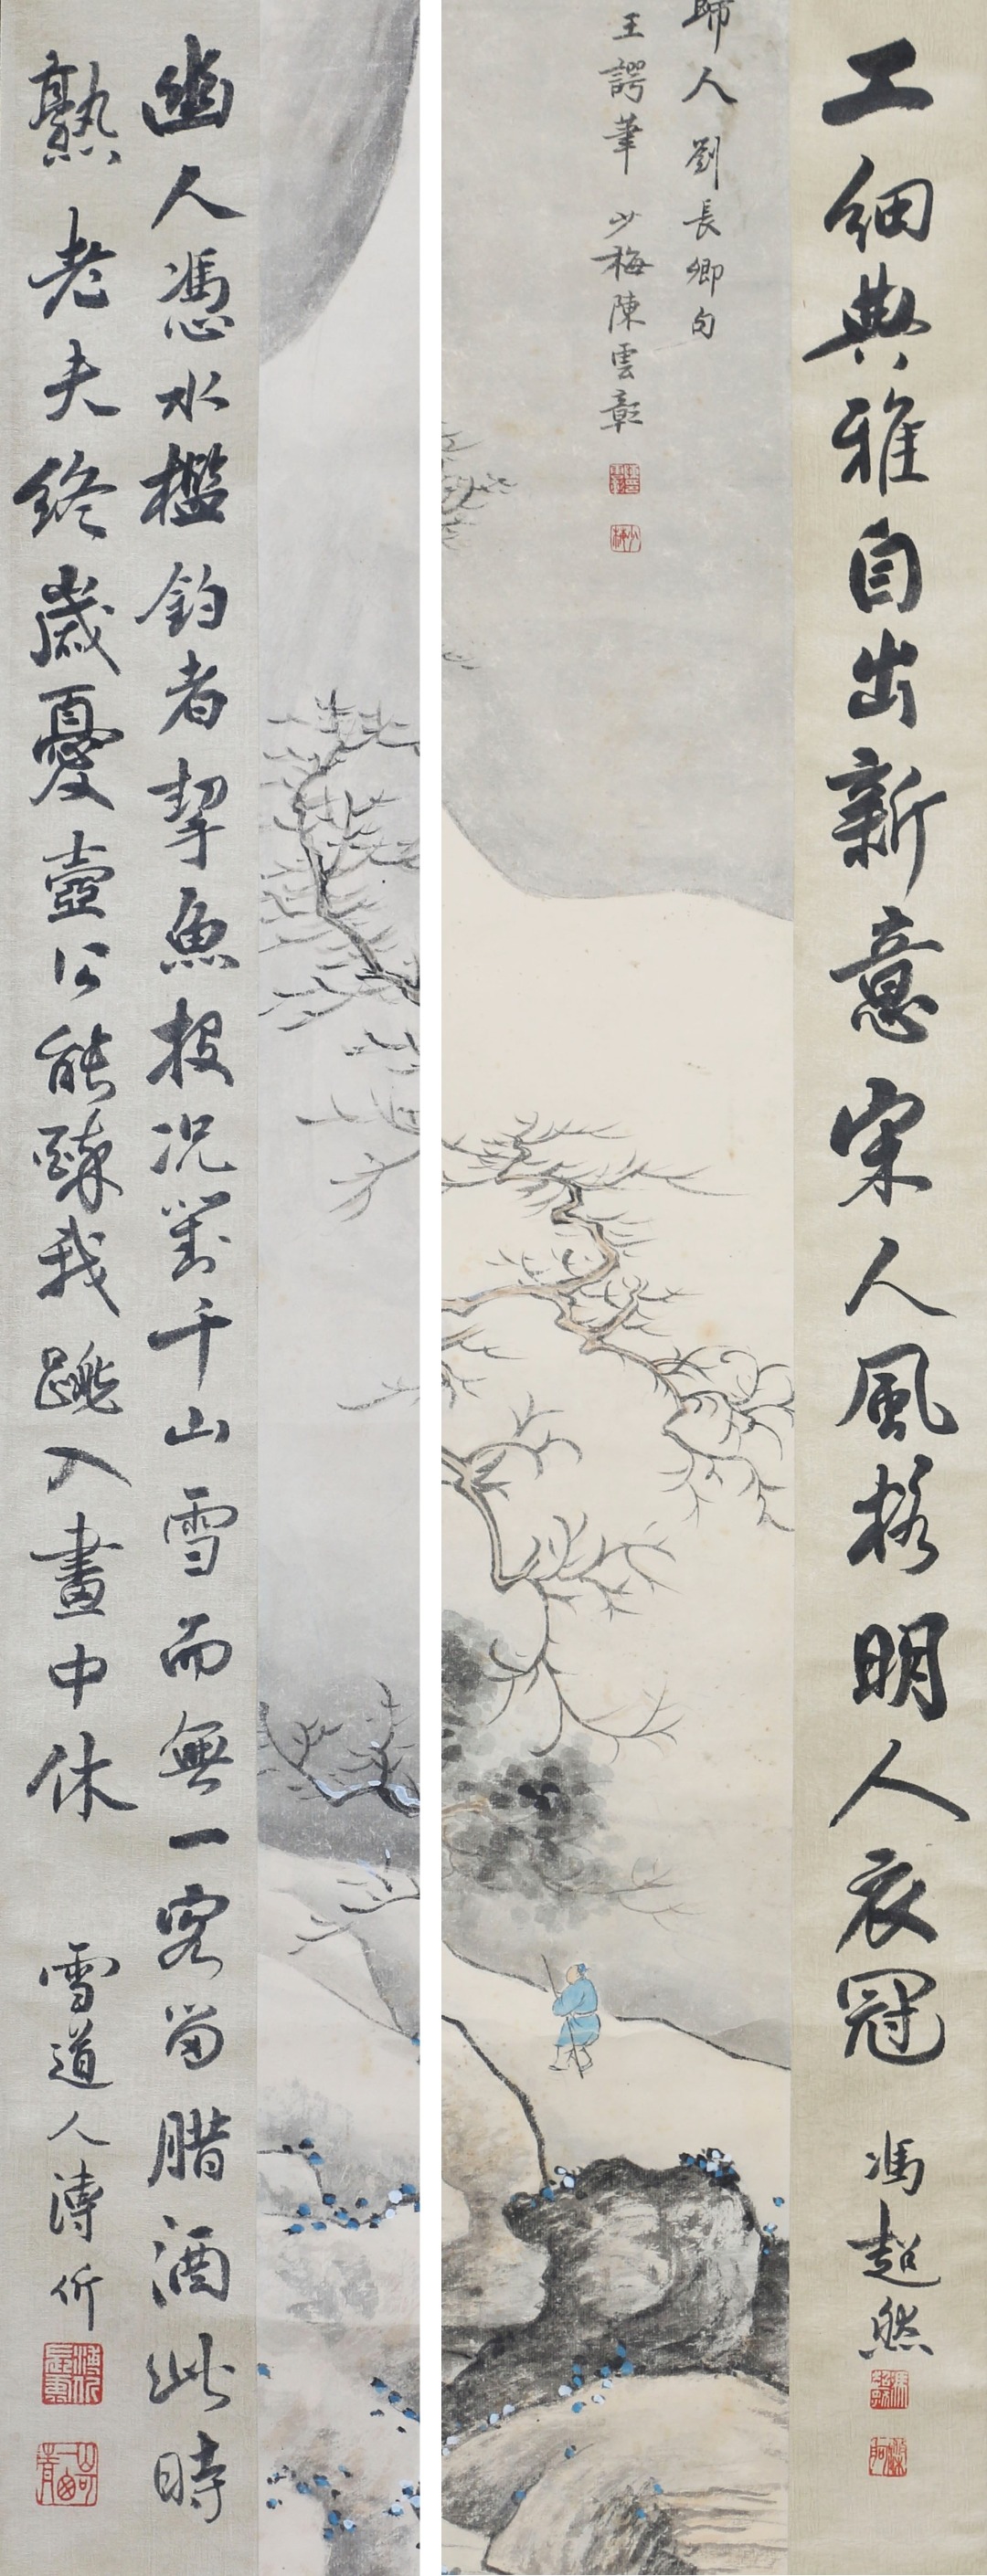 工細典雅自出新意宋人風格明人衣冠　馮超然
歸人　劉長卿句
王諤筆　少梅陳雲彰
幽人憑水檻釣者挈魚投況對千山雪而無一客留腊酒此時
熟老夫終歲憂壺公能醉我跳入畫中休　雪道人溥伒